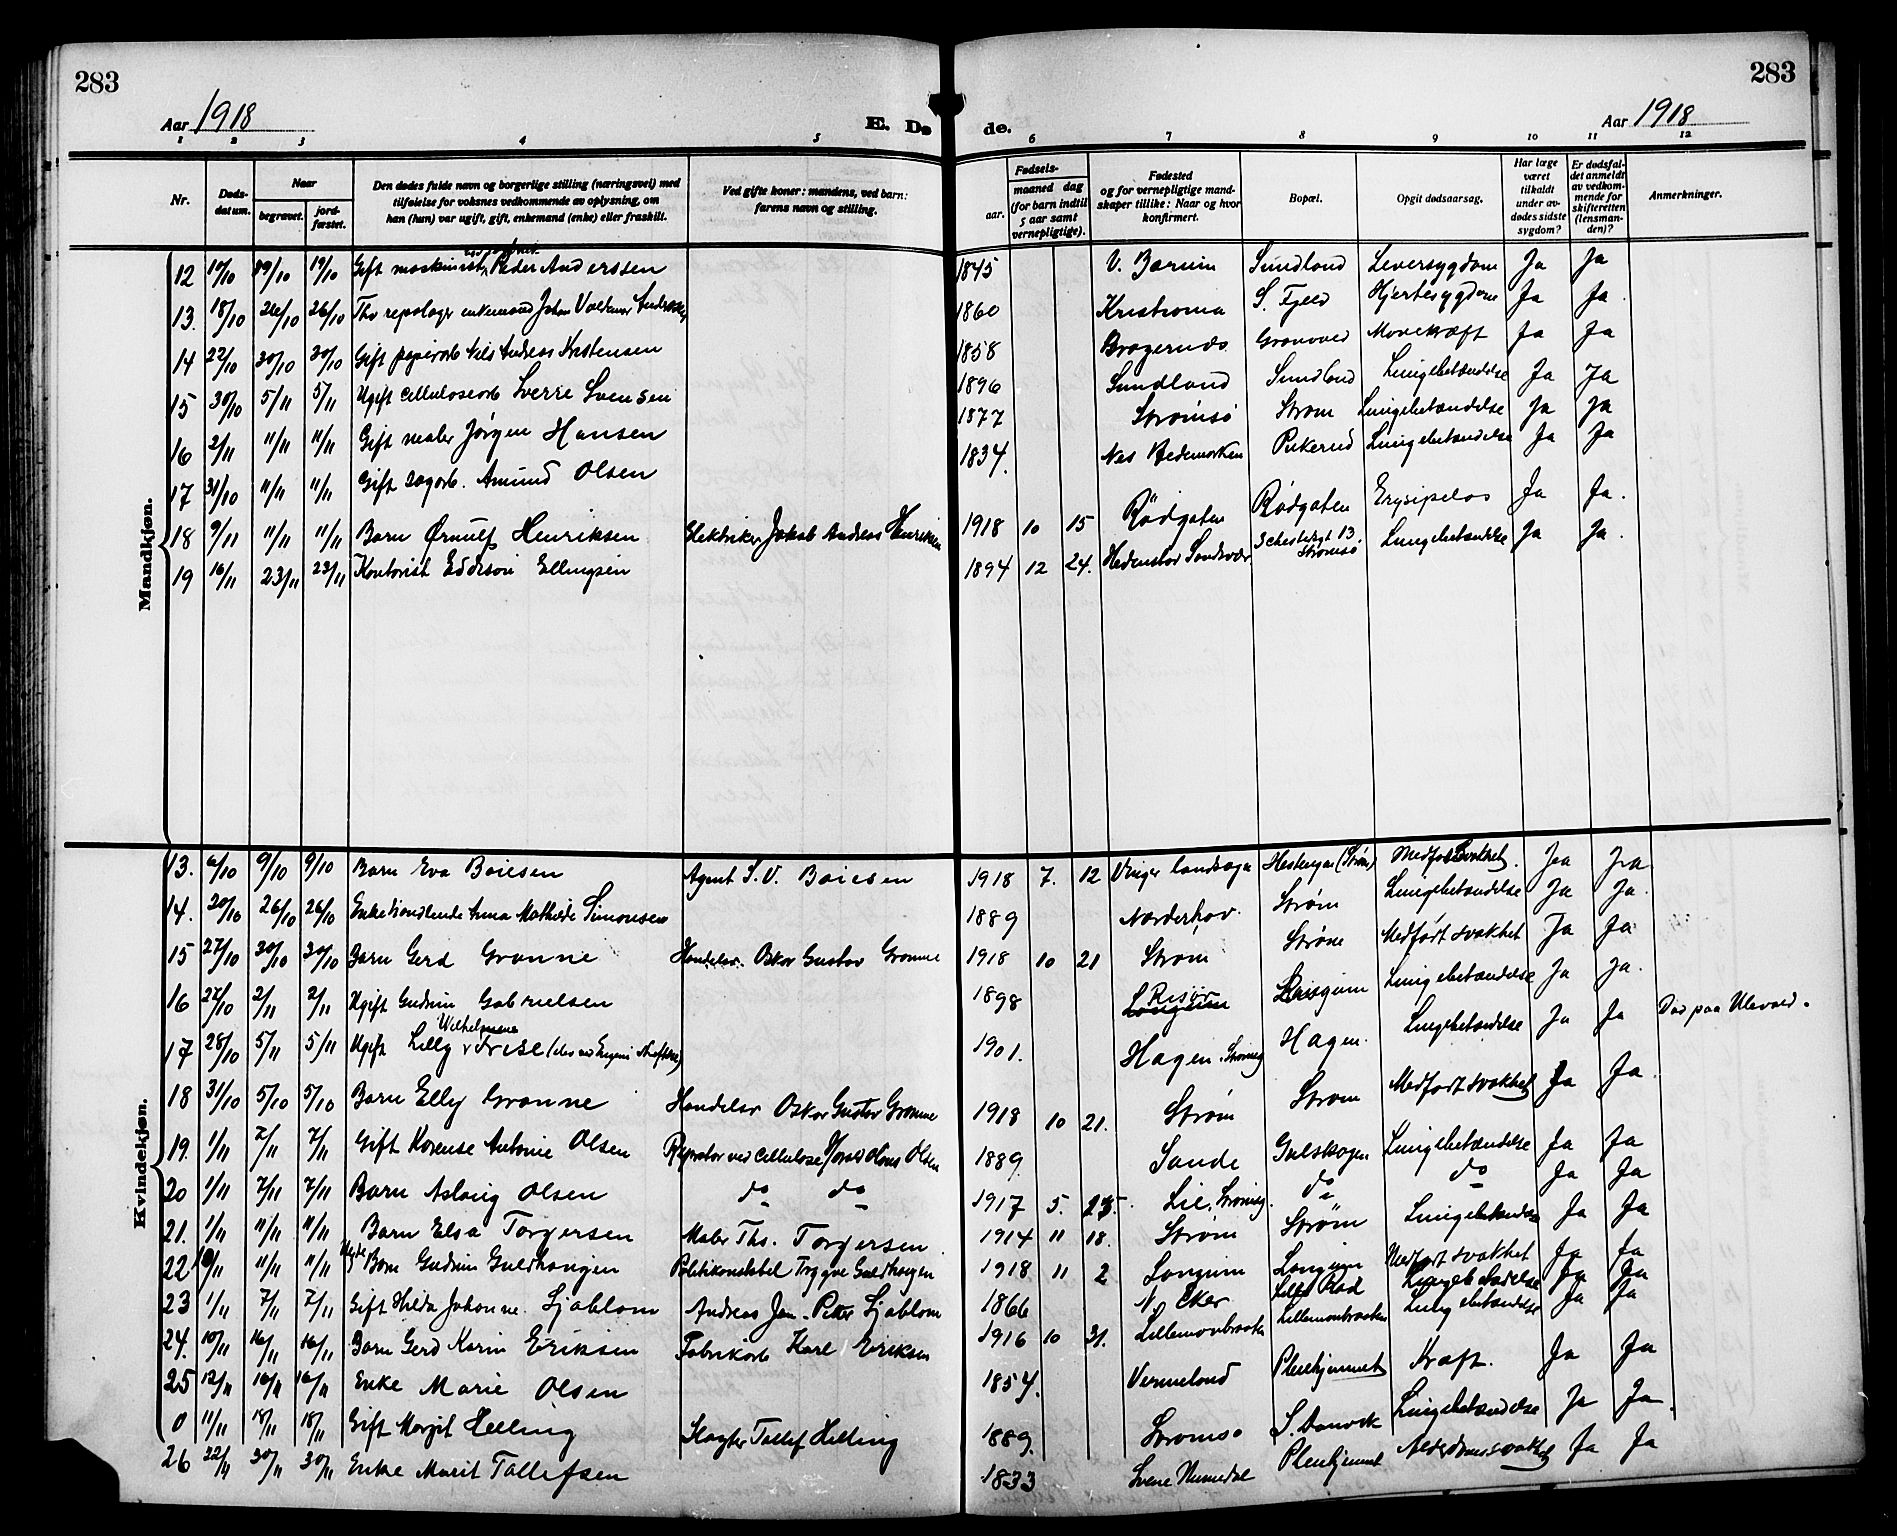 283
283
Aar 1918
E. Dø
de.
Aar 1918
1 2 3 4 5 6 7 8 9 10 11 12
Nr.
Døds-
datum.
Naar
begravet.
jord-
fæstet.
Den dødes fulde navn og borgerlige stilling (næringsvei) med
tilføielse for voksnes vedkommende av oplysning, om
han (hun) var ugift, gift, enkemand (enke) eller fraskilt.
Ved gifte koner: mandens, ved barn:
farens navn og stilling.
Fødsels-
aar.
maaned dag
(for barn indtil
5 aar samt
vernepligtige).
Fødested
og for vernepligtige mand-
skaper tillike: Naar og hvor
konfirmert.
Bopæl.
Opgit dødsaarsag.
Har læge
været
tilkaldt
under av-
dødes sidste
sygdom?
Er dødsfal-
det anmeldt
av vedkom-
mende for
skifteretten
(lensman-
den)?
Anmerkninger.
Mandkjøn.
12 19/10 19/10 Gift maskinist Peder Anderssen 1845 V. Bærum Sundland Leversygdom Ja Ja
13. 18/10 26/10 26/10 enkemand Johan Valdemar 1860 Kristiania S. Fjeld Hjertesygdom Ja Ja.
14 22/10 30/10 30/10 Gift papirarb Nils Andreas Kristensen 1858 Bragernes Mavekræft Ja Ja
15 30/10 5/11 5/11 Ugift cellulosearb Sverre Svensen 1896 Sundland Sundland Lungebetændelse Ja Ja
16 2/11 11/11 11/11 Gift maler Jørgen Hansen 1877 Strømsø Strøm Lungebetændelse Ja Ja
17 31/10 11/11 11/11 Gift sagarb. Amund Olsen 1834. Nes Hedemarken Pukerud Lungebetændelse Ja Ja
18 9/11 11/11 11/11 Barn Ørnulf Henriksen Elektriker Jakob Andreas Henriksen 1918 10 15 Rødgaten Rødgaten Erysipelas Ja Ja.
19 16/11 23/11 23/11 Kontorist Eddison Ellingsen 1894 12 24. Hedenstad Sandsvær 13 Strømsø Lungebetændelse Ja Ja.
Kvindekjøn.
13. 6/10 9/10 9/10 Barn Eva Boiesen Agent S. V. Boiesen 1918 7. 12 Vinger landsogn (Strøm) Medfødt svakhet. Ja Ja
14. 20/10 26/10 26/10 Enke Handlende Anna Mathilde Simonsen 1889 Norderhov. Strøm Lungebetændelse Ja Ja.
15 27/10 30/10 30/10 Barn Gerd Grønne Handelsr. Oskar Gustav Grønne 1918 10 21 Strøm Strøm Medfødt svakhet Ja Ja.
16 27/10 2/11 2/11 Ugift Gudrun Gabrielsen 1898 Langum Risør Langum Lungebetændelse Ja Ja.
17 28/10 5/11 5/11 Ugift Lilly Wilhelmine 1901. Hagen, Hagen. Lungebetændelse Ja Ja Død paa Ulevaal.
18 31/10 5/10 5/10 Barn Elly Grønne Handelsr Oskar Gustav Grønne 1918 10 21. Strøm Strøm Medfødt svakhet Ja Ja.
19. 1/11 7/11 7/11 Gift Korense Antonie Olsen Reparatør ved Cellulose Hans Olsen 1889. Sande Gulskogen Lungebetændelse Ja Ja
20 1/11 7/11 7/11 Barn Aslaug Olsen do do 1917 5. 23. Lie, do do Ja Ja
21. 1/11 11/11 11/11 Barn Elsa Torgersen Maler Ths. Torgersen. 1914 11 18. Strøm Strøm Lungebetændelse Ja Ja
22 11/11 11/11 Barn Gudrun Guldhaugen Politikonstabel Trygve Guldhaugen 1918 11 2 Langum Langum Medfødt svakhet Ja Ja
23 1/11 7/11 7/11 Gift Hilda Johanne Sjøblom Andreas Peter Sjøblom 1866 N. Eker Lungebetændelse Ja Ja
24. 10/11 16/11 16/11 Barn Gerd Karin Eriksen Fabrikarb Karl Eriksen 1916 10 31. Lungebetændelse Ja Ja
25 12/11 16/11 16/11 Enke Marie Olsen 1854. Vermeland Pleiehjemmet Kræft. Ja Ja
0 11/11 18/11 18/11 Gift Margit Helling Slagter Tollef Helling 1889. Strømsø S. Danvik Lungebetændelse Ja Ja.
26 22/11 30/11 30/11 Enke Marit Tollefsen 1833 Svene Numedal Pleiehjemmet Alderdomssvakhet Ja Ja